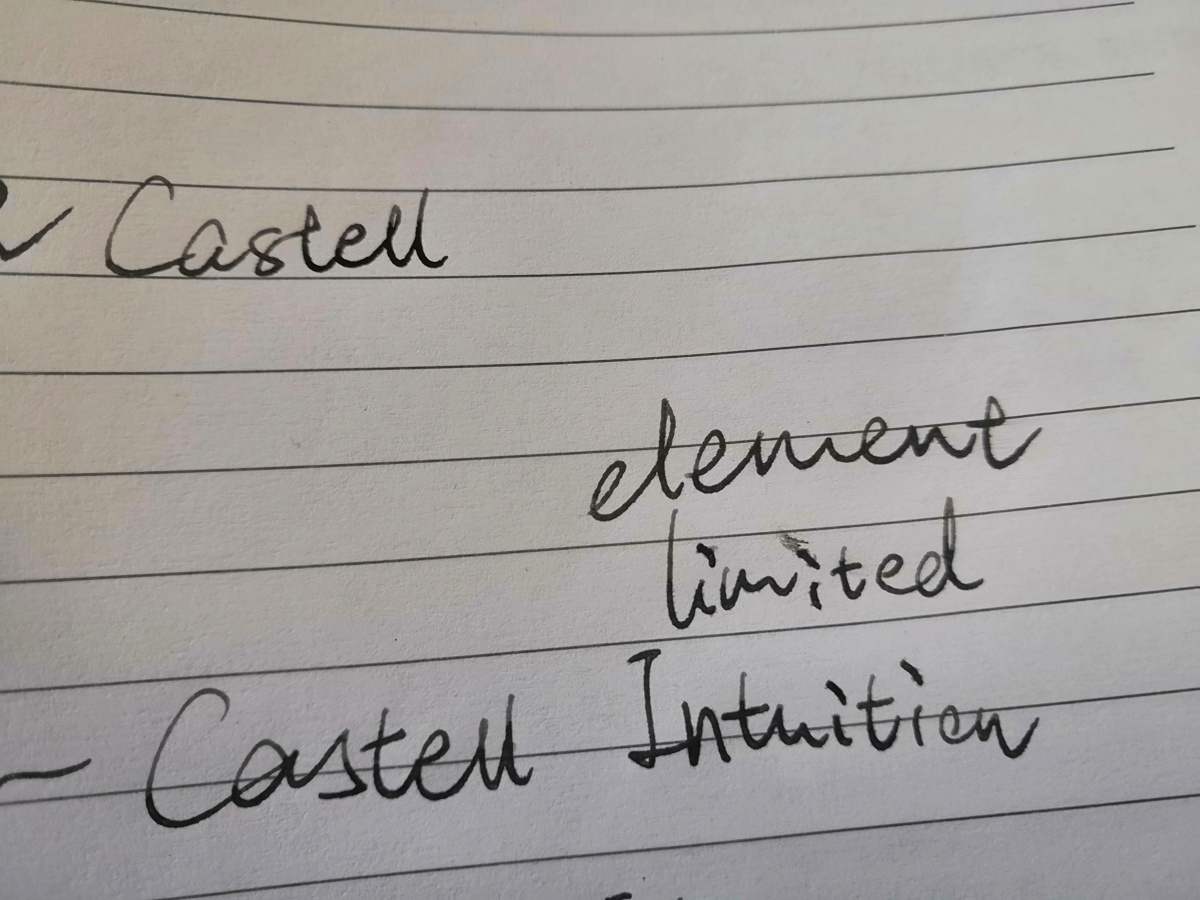 Castell
element
limited
Castell Intuition